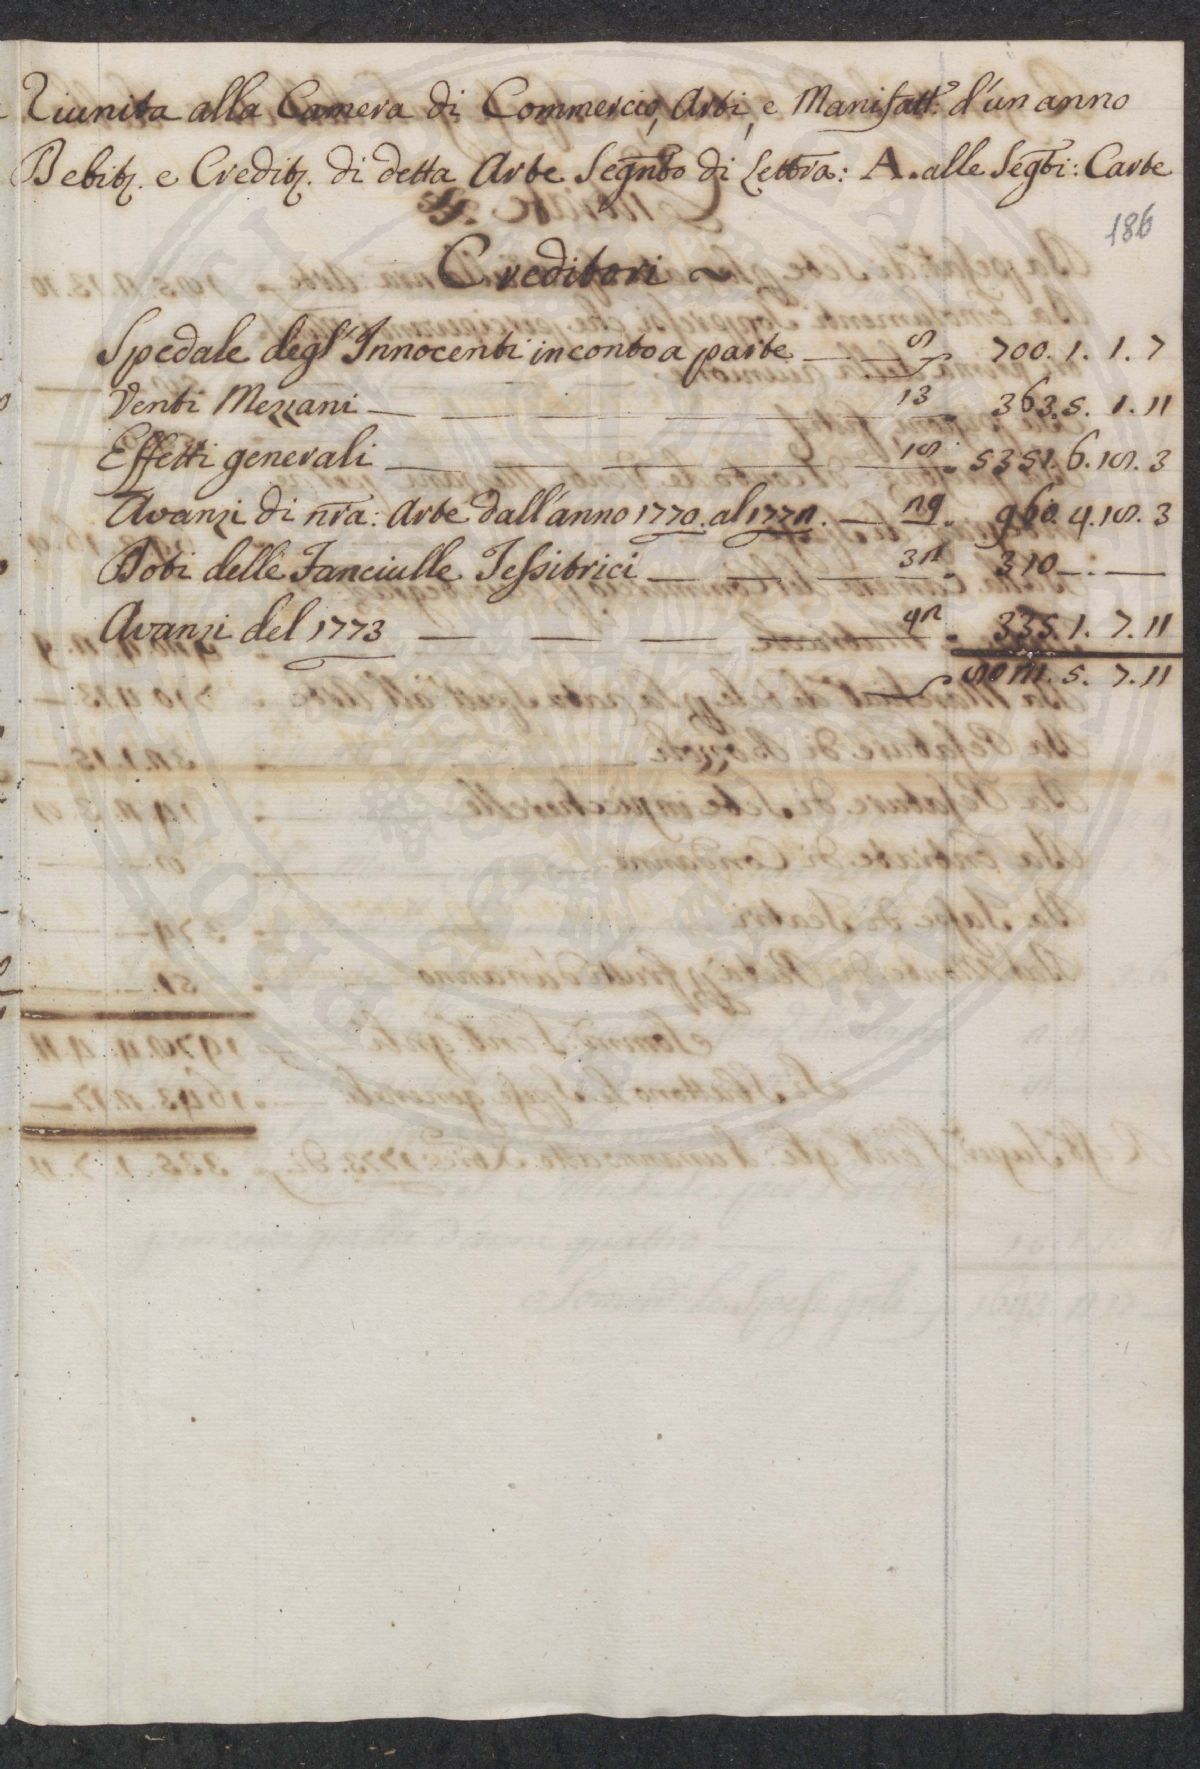 Riunita alla Camera di Commercio, Arti, e Manifatt:e d'un anno
Debit.i e Credit.i di detta Arte Segnto di Lettra: A. alle Segti: Carte
186
Creditori ~
Spedale degl'Innocenti in conto a parte — — 8 700. 1. 1. 7
Venti Mezzani — — — — — 13. 363. 5. 1. 11
Effetti generali — — — — — 18. 5351. 6. 18. 3
Avanzi di nra: Arte dall'anno 1770. al 1772. — 29. 960. 4. 18. 3
Doti delle Fanciulle Tessitrici — — — 32. 310 — . —
Avanzi del 1773 — — — — 42. 335. 1. 7. 11
8021. 5. 7. 11